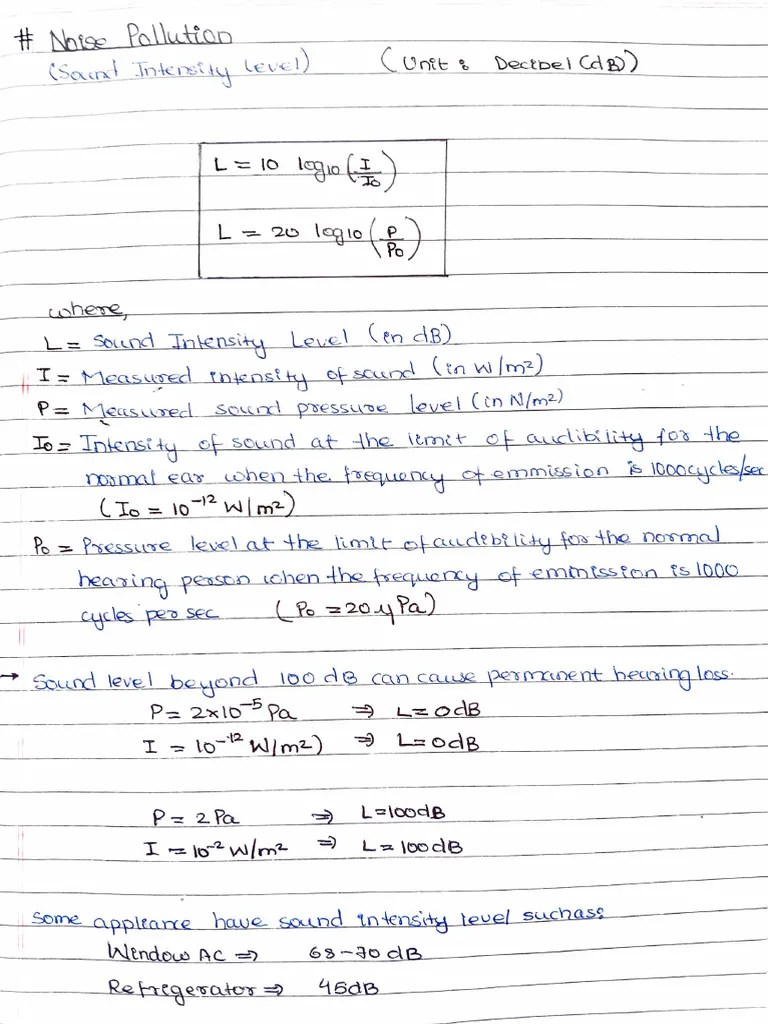 # Noise Pollution
(Sound Intensity Level) (Unit : Decibel (dB))
L = 10 log10 (I/I0)
L = 20 log10 (P/P0)
where,
L = Sound Intensity Level (in dB)
I = Measured intensity of sound (in W/m²)
P = Measured sound pressure level (in N/m²)
I0 = Intensity of sound at the limit of audibility for the
normal ear when the frequency of emmission is 1000cycles/sec
(I0 = 10⁻¹² W/m²)
P0 = Pressure level at the limit of audibility for the normal
hearing person when the frequency of emmission is 1000
cycles per sec (P0 = 20 μPa)
→ Sound level beyond 100 dB can cause permanent hearing loss.
P = 2×10⁻⁵ Pa ⇒ L = 0dB
I = 10⁻¹² W/m²) ⇒ L = 0dB
P = 2 Pa ⇒ L = 100dB
I = 10⁻² W/m² ⇒ L = 100dB
Some appliance have sound intensity level such as:
Window AC ⇒ 68-70 dB
Refrigerator ⇒ 45dB